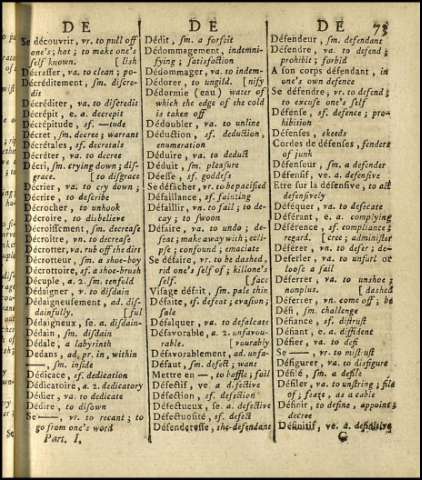 DE DE DE 73
Se découvrir, vr. to pull off
one's; hat; to make one's
self known. [lish
Décrasser, va. to clean; po-
Décréditement, sm. discre-
dit
Décréditer, va. to discredit
Décrépit, e. a. decrepit
Décrépitude, sf. —tude
Décret, sm. decree; warrant
Décrétales, sf. decretals
Décréter, va. to decree
Décri, sm. crying down; dis-
grace. [to disgrace
Décrier, va. to cry down;
Décrire, to describe
Décrocher, to unhook
Décroire, to disbelieve
Décroissement, sm. decrease
Décroître, vn. to decrease
Décrotter, va. rub off the dirt
Décrotteur, sm. a shoe-boy
Décrottoire, sf. a shoe-brush
Décuple, a. 2. sm. tenfold
Dédaigner, v. to disdain
Dédaigneusement, ad. dis-
dainfully. [ful
Dédaigneux, se. a. disdain-
Dédain, sm. disdain
Dédale, a labyrinth
Dedans, ad. pr. in, within
—, sm. inside
Dédicace, sf. dedication
Dédicatoire, a. 2. dedicatory
Dédier, va. to dedicate
Dédire, to disown
Se —, vr. to recant; to
go from one's word
Part. I.
Dédit, sm. a forfeit
Dédommagement, indemni-
fying; satisfaction
Dédommager, va. to indem-
Dédorer, to ungild. [nify
Dédormie (eau) water of
which the edge of the cold
is taken off
Dédoubler, va. to unline
Déduction, sf. deduction,
enumeration
Déduire, va. to deduct
Déduit, sm. pleasure
Déesse, sf. goddess
Se défâcher, vr. to be pacified
Défaillance, sf. fainting
Défaillir, vn. to fail; to de-
cay; to swoon
Défaire, va. to undo; de-
feat; make away with; ecli-
pse; confound; emaciate
Se défaire, vr. to be dashed,
rid one's self of; kill one's
self. [face
Visage défait, sm. pale thin
Défaite, sf. defeat; evasion;
sale
Défalquer, va. to defalcate
Défavorable, a 2. unfavou-
rable. [vourably
Défavorablement, ad. unfa-
Défaut, sm. defect; want
Mettre en —, to baffle; foil
Défectif, ve. a defective
Défection, sf. defection
Défectueux, se a. defective
Défectuosité, sf. defect
Défenderesse, she-defendant
Défendeur, sm. defendant
Défendre, va. to defend;
prohibit; forbid
A son corps défendant, in
one's own defence
Se défendre, vr. to defend;
to excuse one's self
Défense, sf. defence; pro-
hibition
Défenses, skeeds
Cordes de défenses, fenders
of junk
Défenseur, sm. a defender
Défensif, ve. a. defensive
Etre sur la défensive, to act
defensively
Déféquer, va. to defecate
Déférant, e. a. complying
Déférence, sf. compliance;
regard. [cree; administer
Déférer, vn. to defer; de-
Déferler, va. to unfurl or
loose a sail
Déferrer, va. to unshoe;
nonplus. [dashed
Déferrer, vn. come off; be
Défi, sm. challenge
Défiance, sf. distrust
Défiant, e. a. diffident
Défier, va. to defi
Se —, vr. to mistrust
Défigurer, va. to disfigure
Défilé, sm. a defile
Défiler, va. to unstring; file
of; feaze, as a cable
Définir, to define, appoint;
decree
Définitif, ve. a. definitive
G